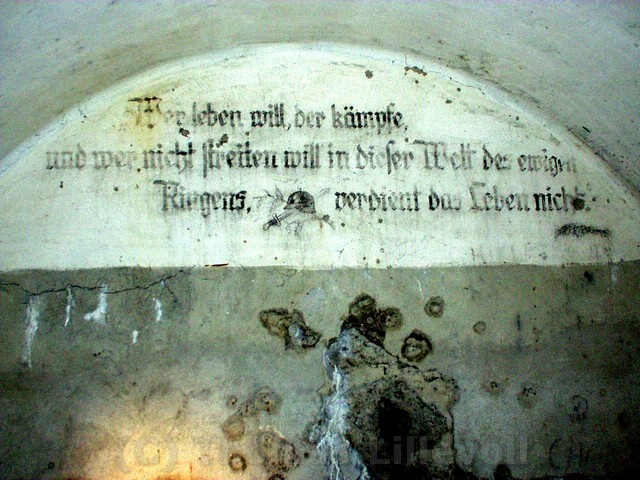 Wer leben will, der kämpfe,
und wer nicht streiten will in dieser Welt des ewigen
Ringens, verdient das Leben nicht.
(C) Lillevoll